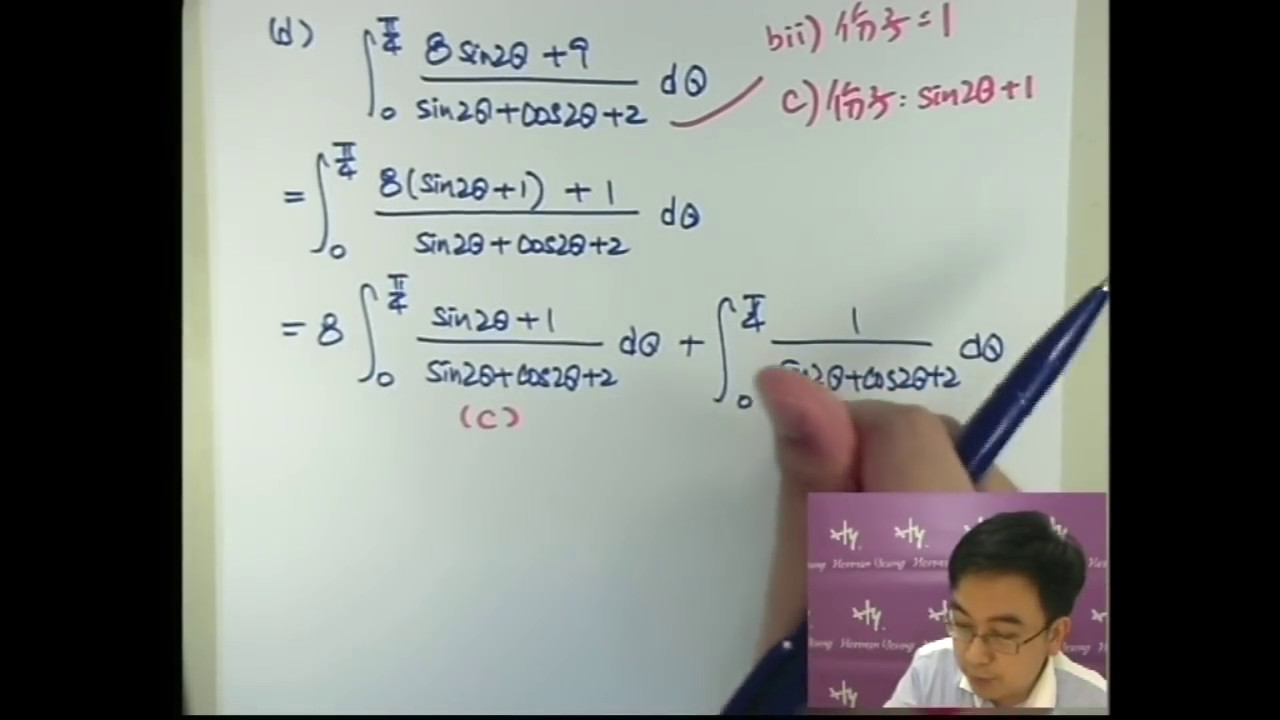 (d) ∫₀^(π/4) (8sin2θ+9)/(sin2θ+cos2θ+2) dθ
bii) 份子=1
c) 份子: sin2θ+1
= ∫₀^(π/4) (8(sin2θ+1)+1)/(sin2θ+cos2θ+2) dθ
= 8 ∫₀^(π/4) (sin2θ+1)/(sin2θ+cos2θ+2) dθ + ∫₀^(π/4) 1/(sin2θ+cos2θ+2) dθ
(c)